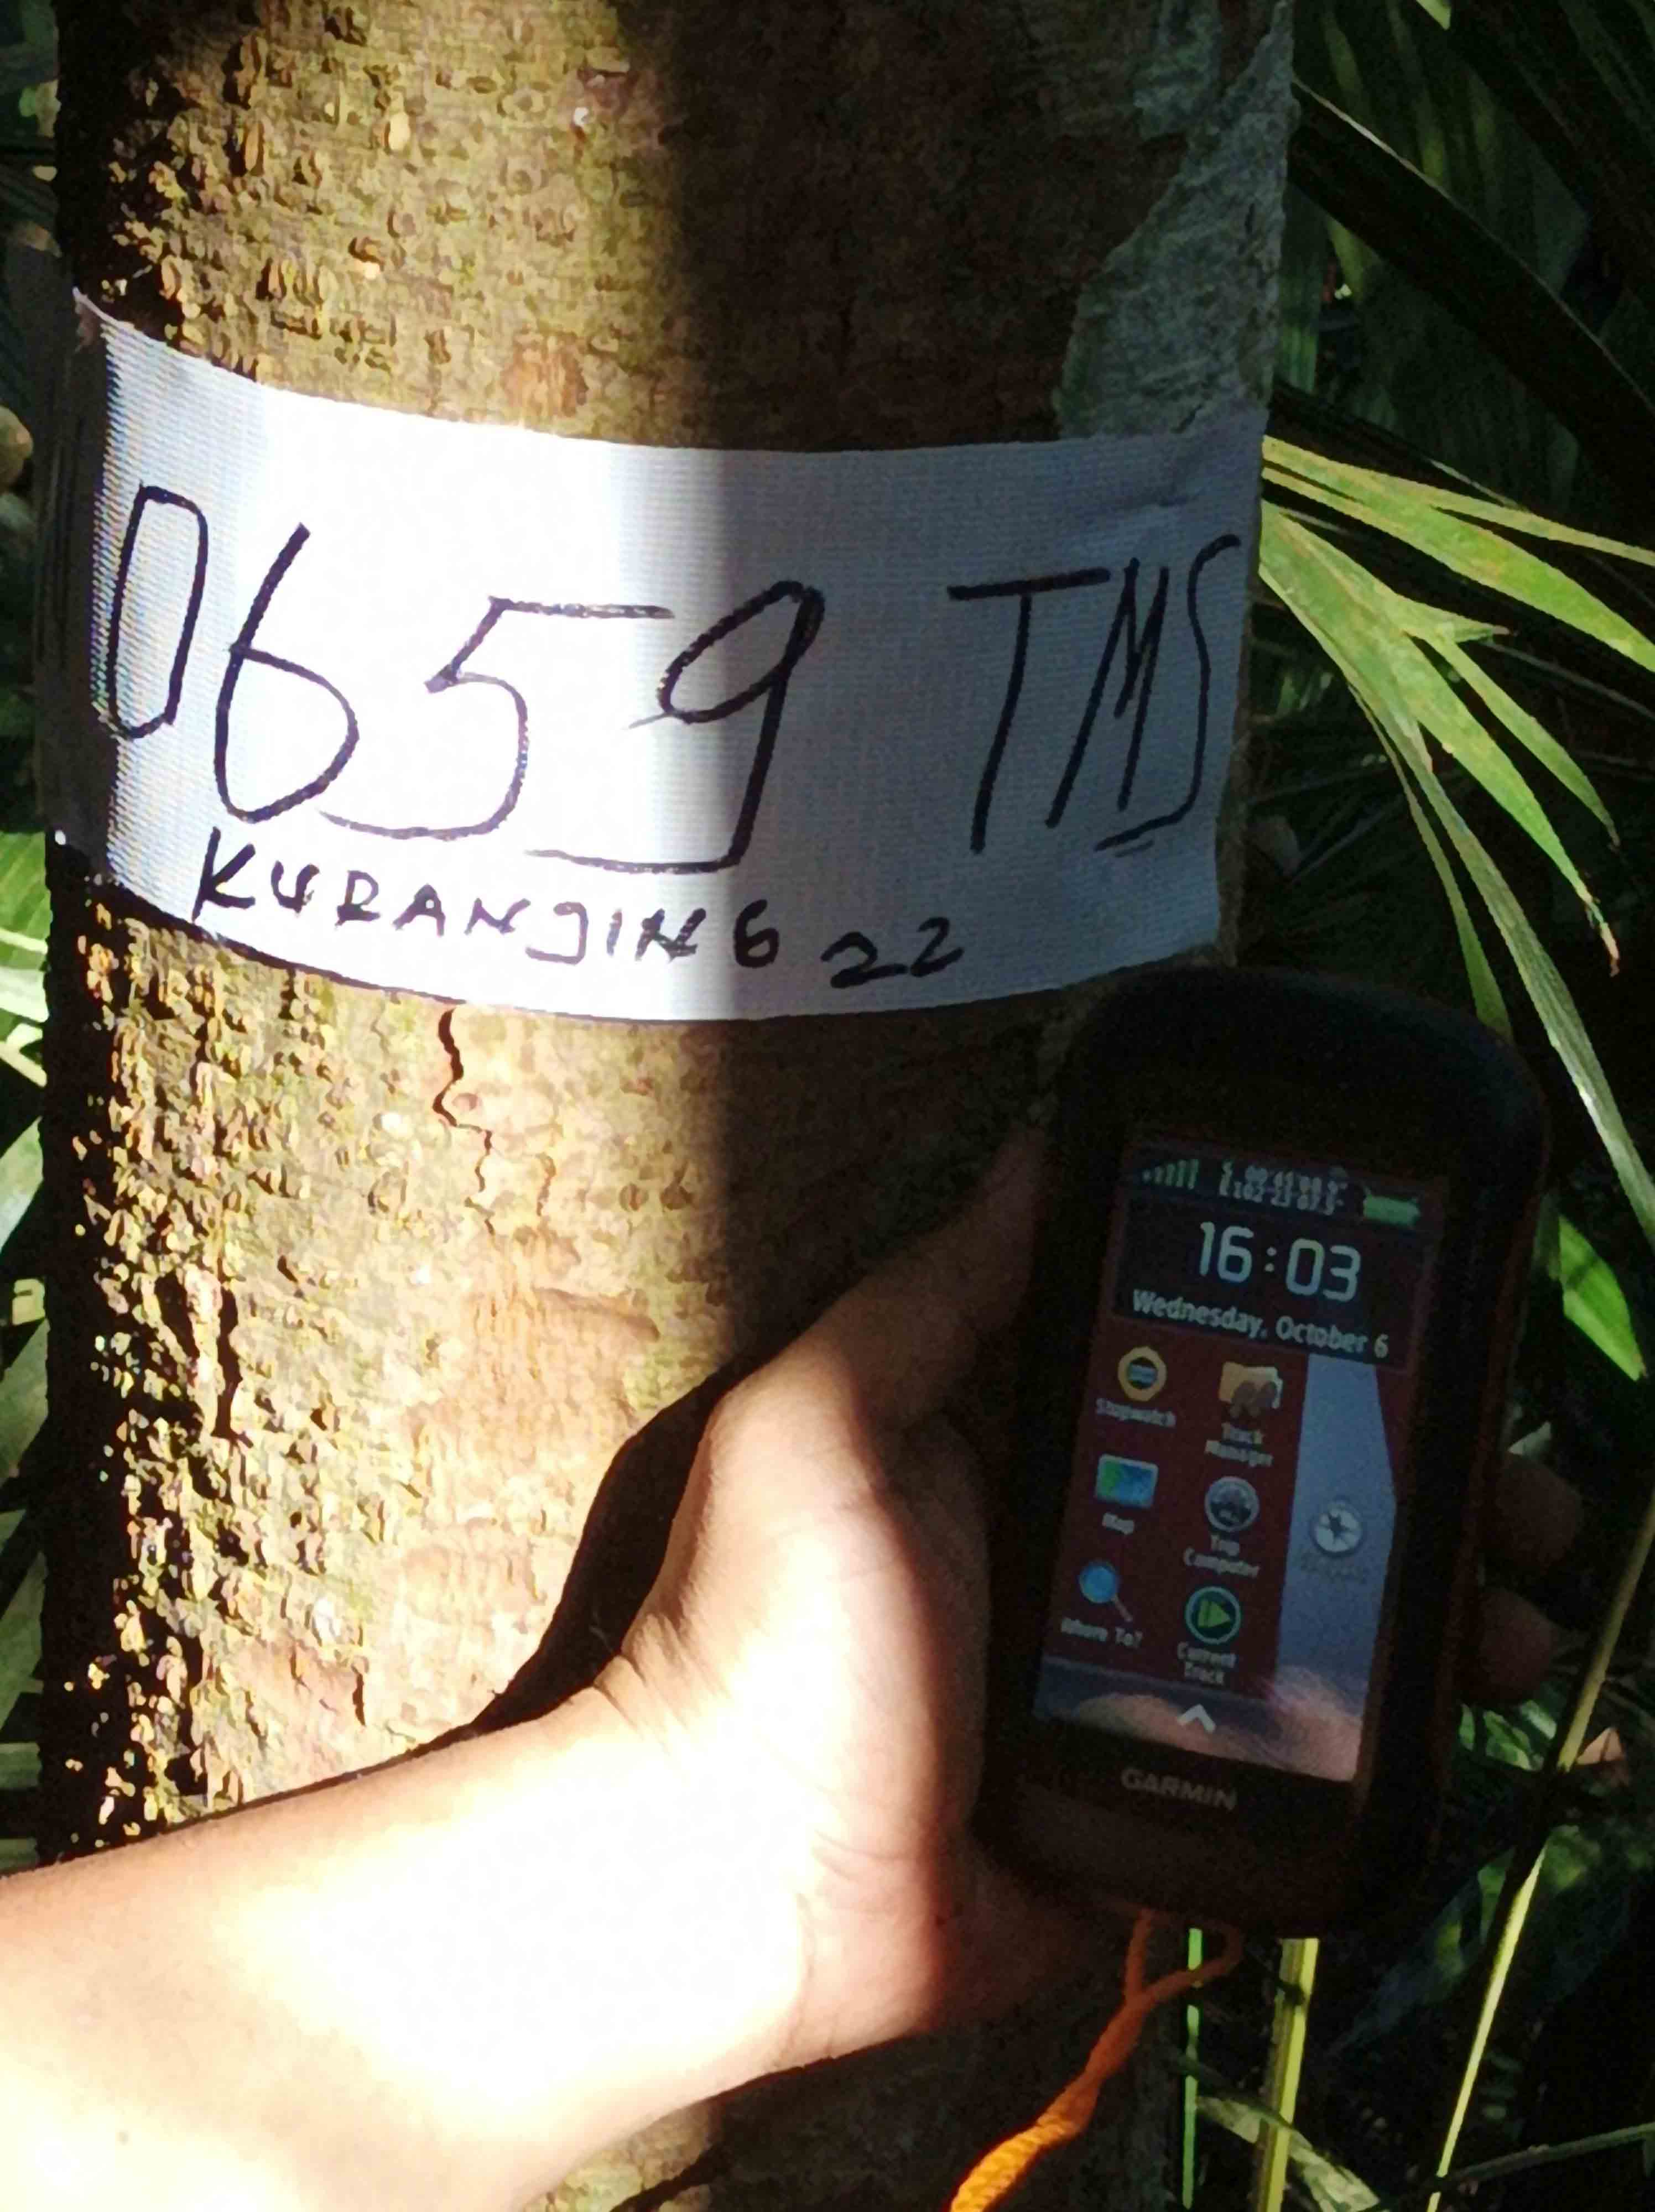 0659 TMS
KURANJING 22
16:03
Wednesday, October 6
Stopwatch
Track
Manager
Map
Trip
Computer
Where To?
Current
Track
GARMIN